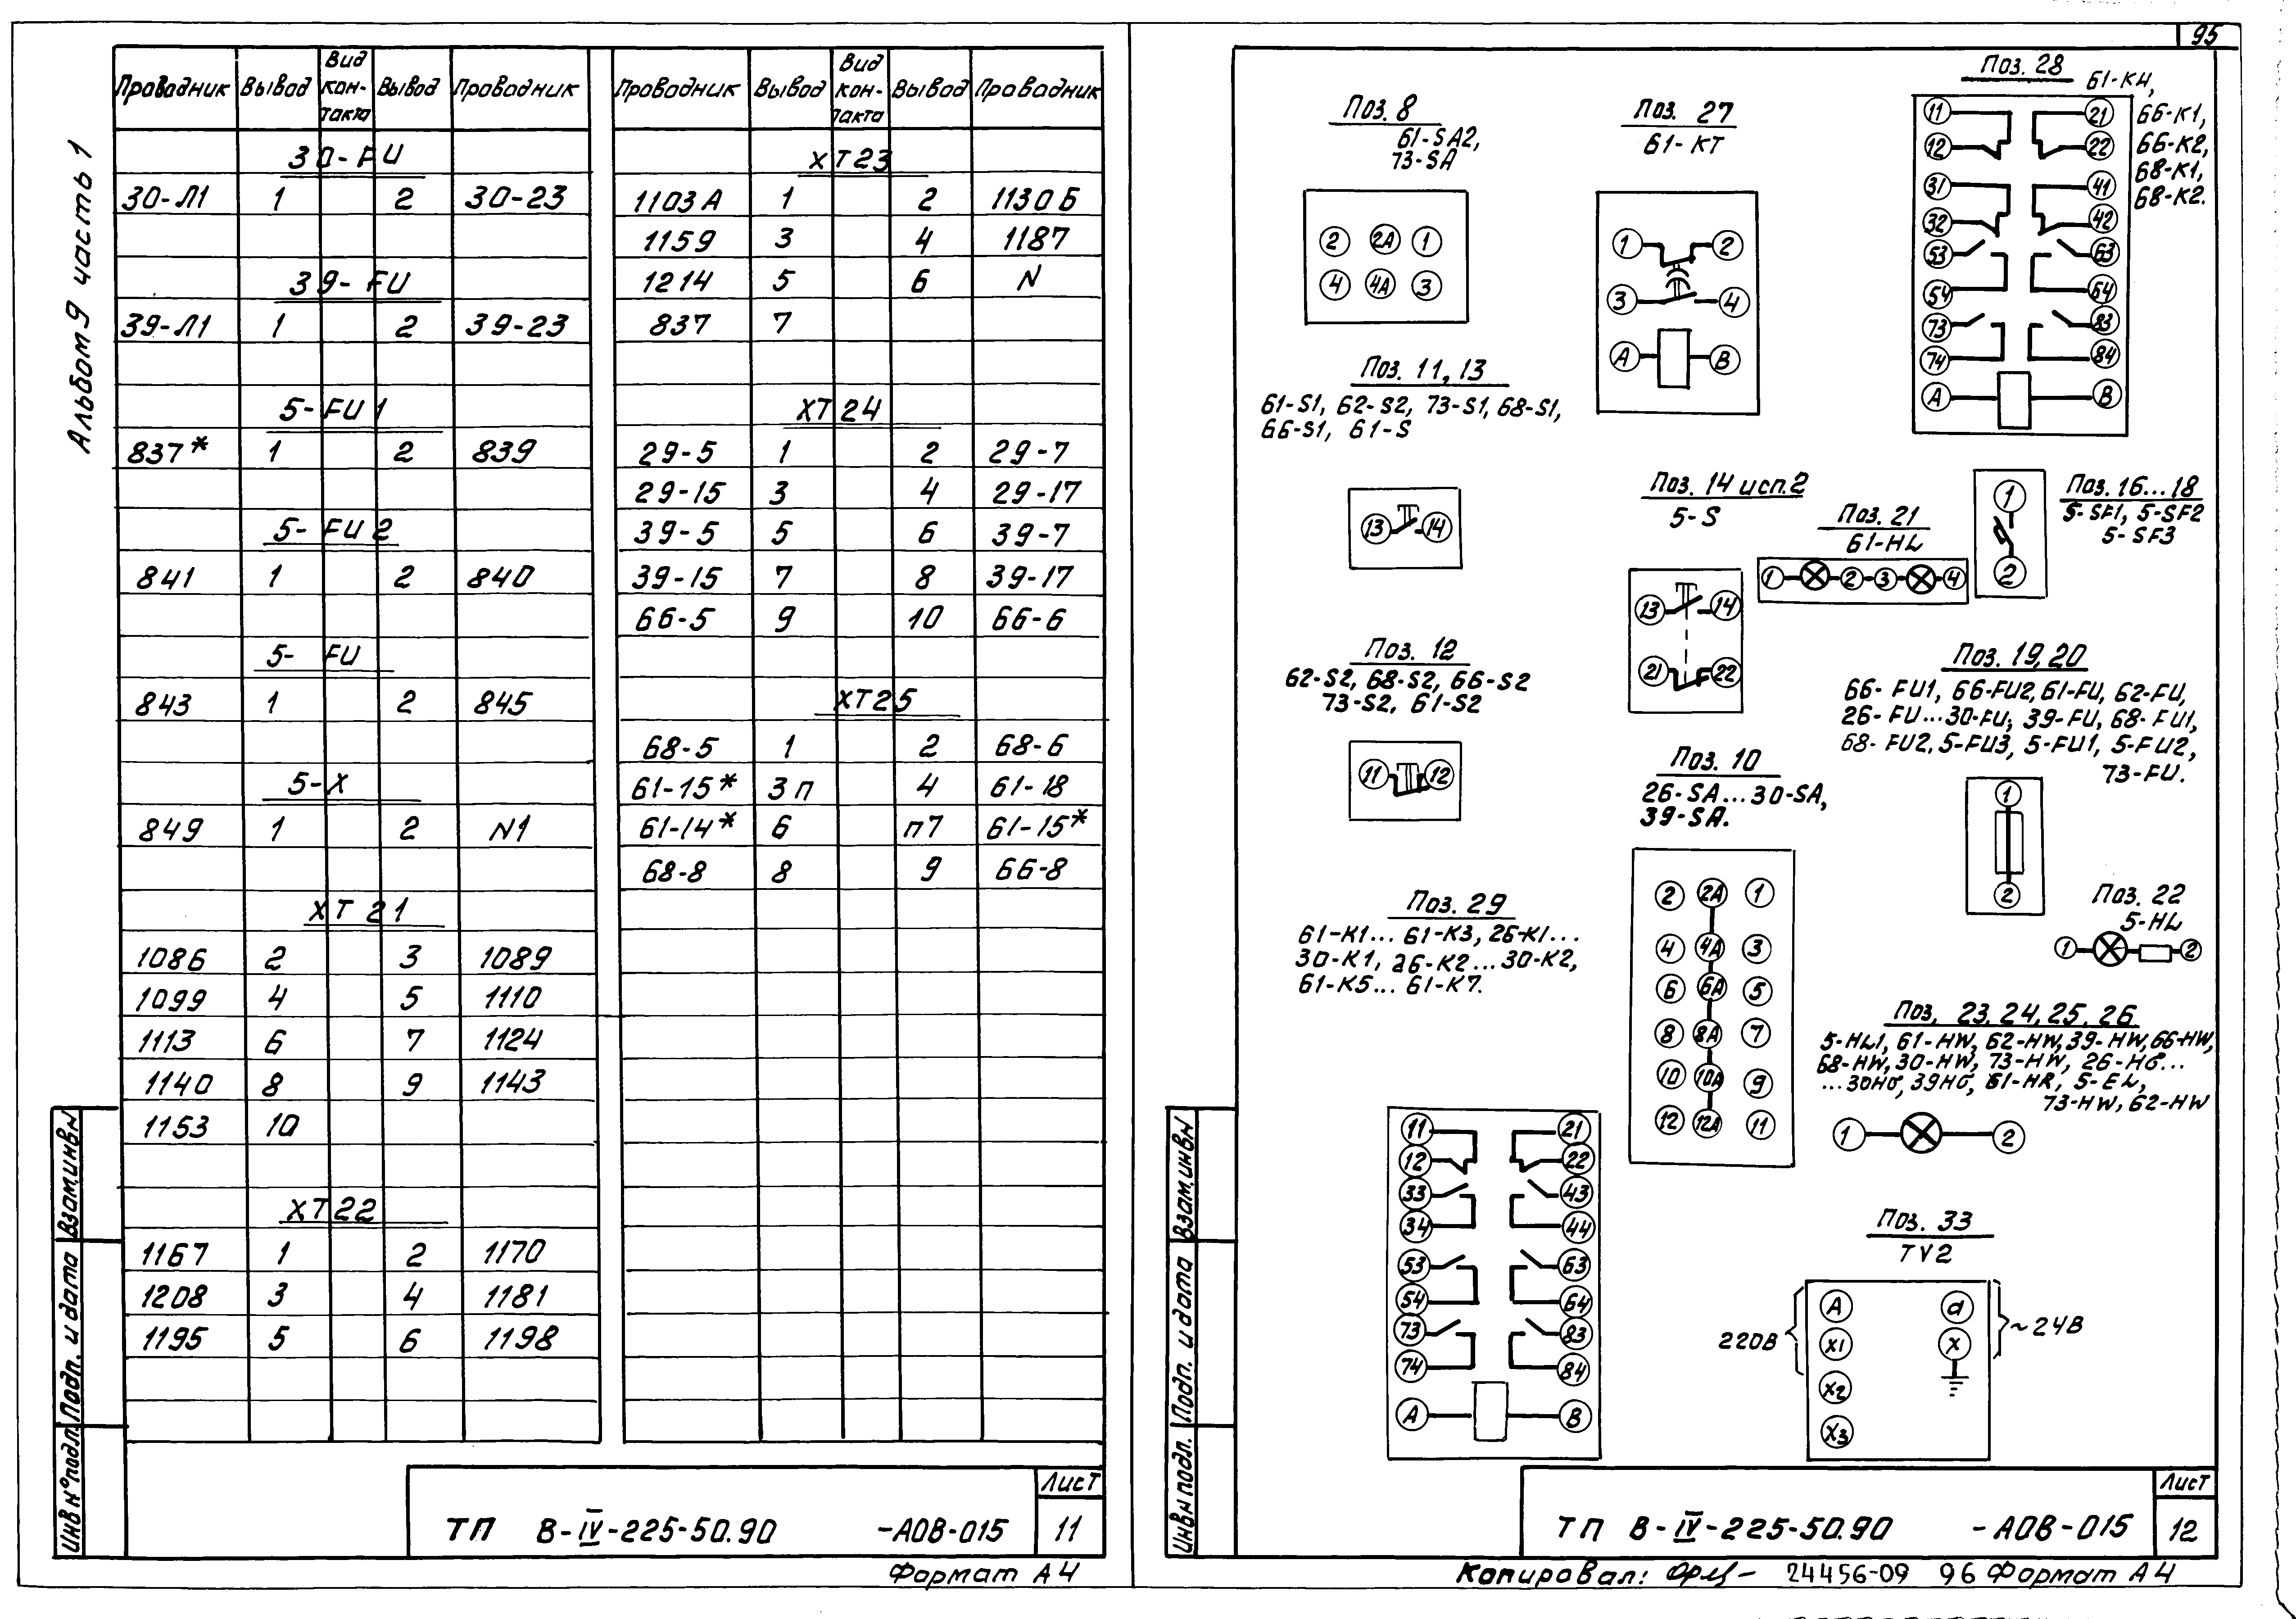 95
Альбом 9 часть 1
Проводник Вывод Вид контакта Вывод Проводник
30-FU
30-Л1 1 2 30-23
39-FU
39-Л1 1 2 39-23
5-FU1
837* 1 2 839
5-FU2
841 1 2 840
5-FU
843 1 2 845
5-X
849 1 2 N1
XT21
1086 2 3 1089
1099 4 5 1110
1113 6 7 1124
1140 8 9 1143
1153 10
XT22
1167 1 2 1170
1208 3 4 1181
1195 5 6 1198
Проводник Вывод Вид контакта Вывод Проводник
XT23
1103А 1 2 1130Б
1159 3 4 1187
1214 5 6 N
837 7
XT24
29-5 1 2 29-7
29-15 3 4 29-17
39-5 5 6 39-7
39-15 7 8 39-17
66-5 9 10 66-6
XT25
68-5 1 2 68-6
61-15* 3п 4 61-18
61-14* 6 п7 61-15*
68-8 8 9 66-8
Взам.инвN
Подп. и дата
Инв N° подл.
ТП В-IV-225-50.90 -АОВ-015
Лист
11
Формат А4
Поз. 8
61-SA2,
73-SA
2 2A 1
4 4A 3
Поз. 27
61-КТ
1 2
3 4
A B
Поз. 28
61-К4,
66-К1,
66-К2,
68-К1,
68-К2.
11 21
12 22
31 41
32 42
53 63
54 64
73 83
74 84
A B
Поз. 11,13
61-S1, 62-S2, 73-S1, 68-S1,
66-S1, 61-S
13 14
Поз. 14 исп.2
5-S
13 14
21 22
Поз. 21
61-HL
1 2 3 4
Поз. 16...18
5-SF1, 5-SF2
5-SF3
1
2
Поз. 12
62-S2, 68-S2, 66-S2
73-S2, 61-S2
11 12
Поз. 19,20
66-FU1, 66-FU2, 61-FU, 62-FU,
26-FU...30-FU, 39-FU, 68-FU1,
68-FU2, 5-FU3, 5-FU1, 5-FU2,
73-FU.
1
2
Поз. 10
26-SA...30-SA,
39-SA.
2 2A 1
4 4A 3
6 6A 5
8 8A 7
10 10A 9
12 12A 11
Поз. 22
5-HL
1 2
Поз. 29
61-К1... 61-К3, 26-К1...
30-К1, 26-К2...30-К2,
61-К5... 61-К7.
11 21
12 22
33 43
34 44
53 63
54 64
73 83
74 84
A B
Поз. 23.24.25.26
5-HL1, 61-HW, 62-HW, 39-HW, 66-HW,
68-HW, 30-HW, 73-HW, 26-HG...
...30HG, 39HG, 61-HR, 5-EL,
73-HW, 62-HW
1 2
Поз. 33
TV2
220В
A a
X1 X
X2
X3
~24В
Взам.инвN
Подп. и дата
ИнвN подл.
ТП В-IV-225-50.90 -АОВ-015
Лист
12
Копировал: 24456-09 96 Формат А4